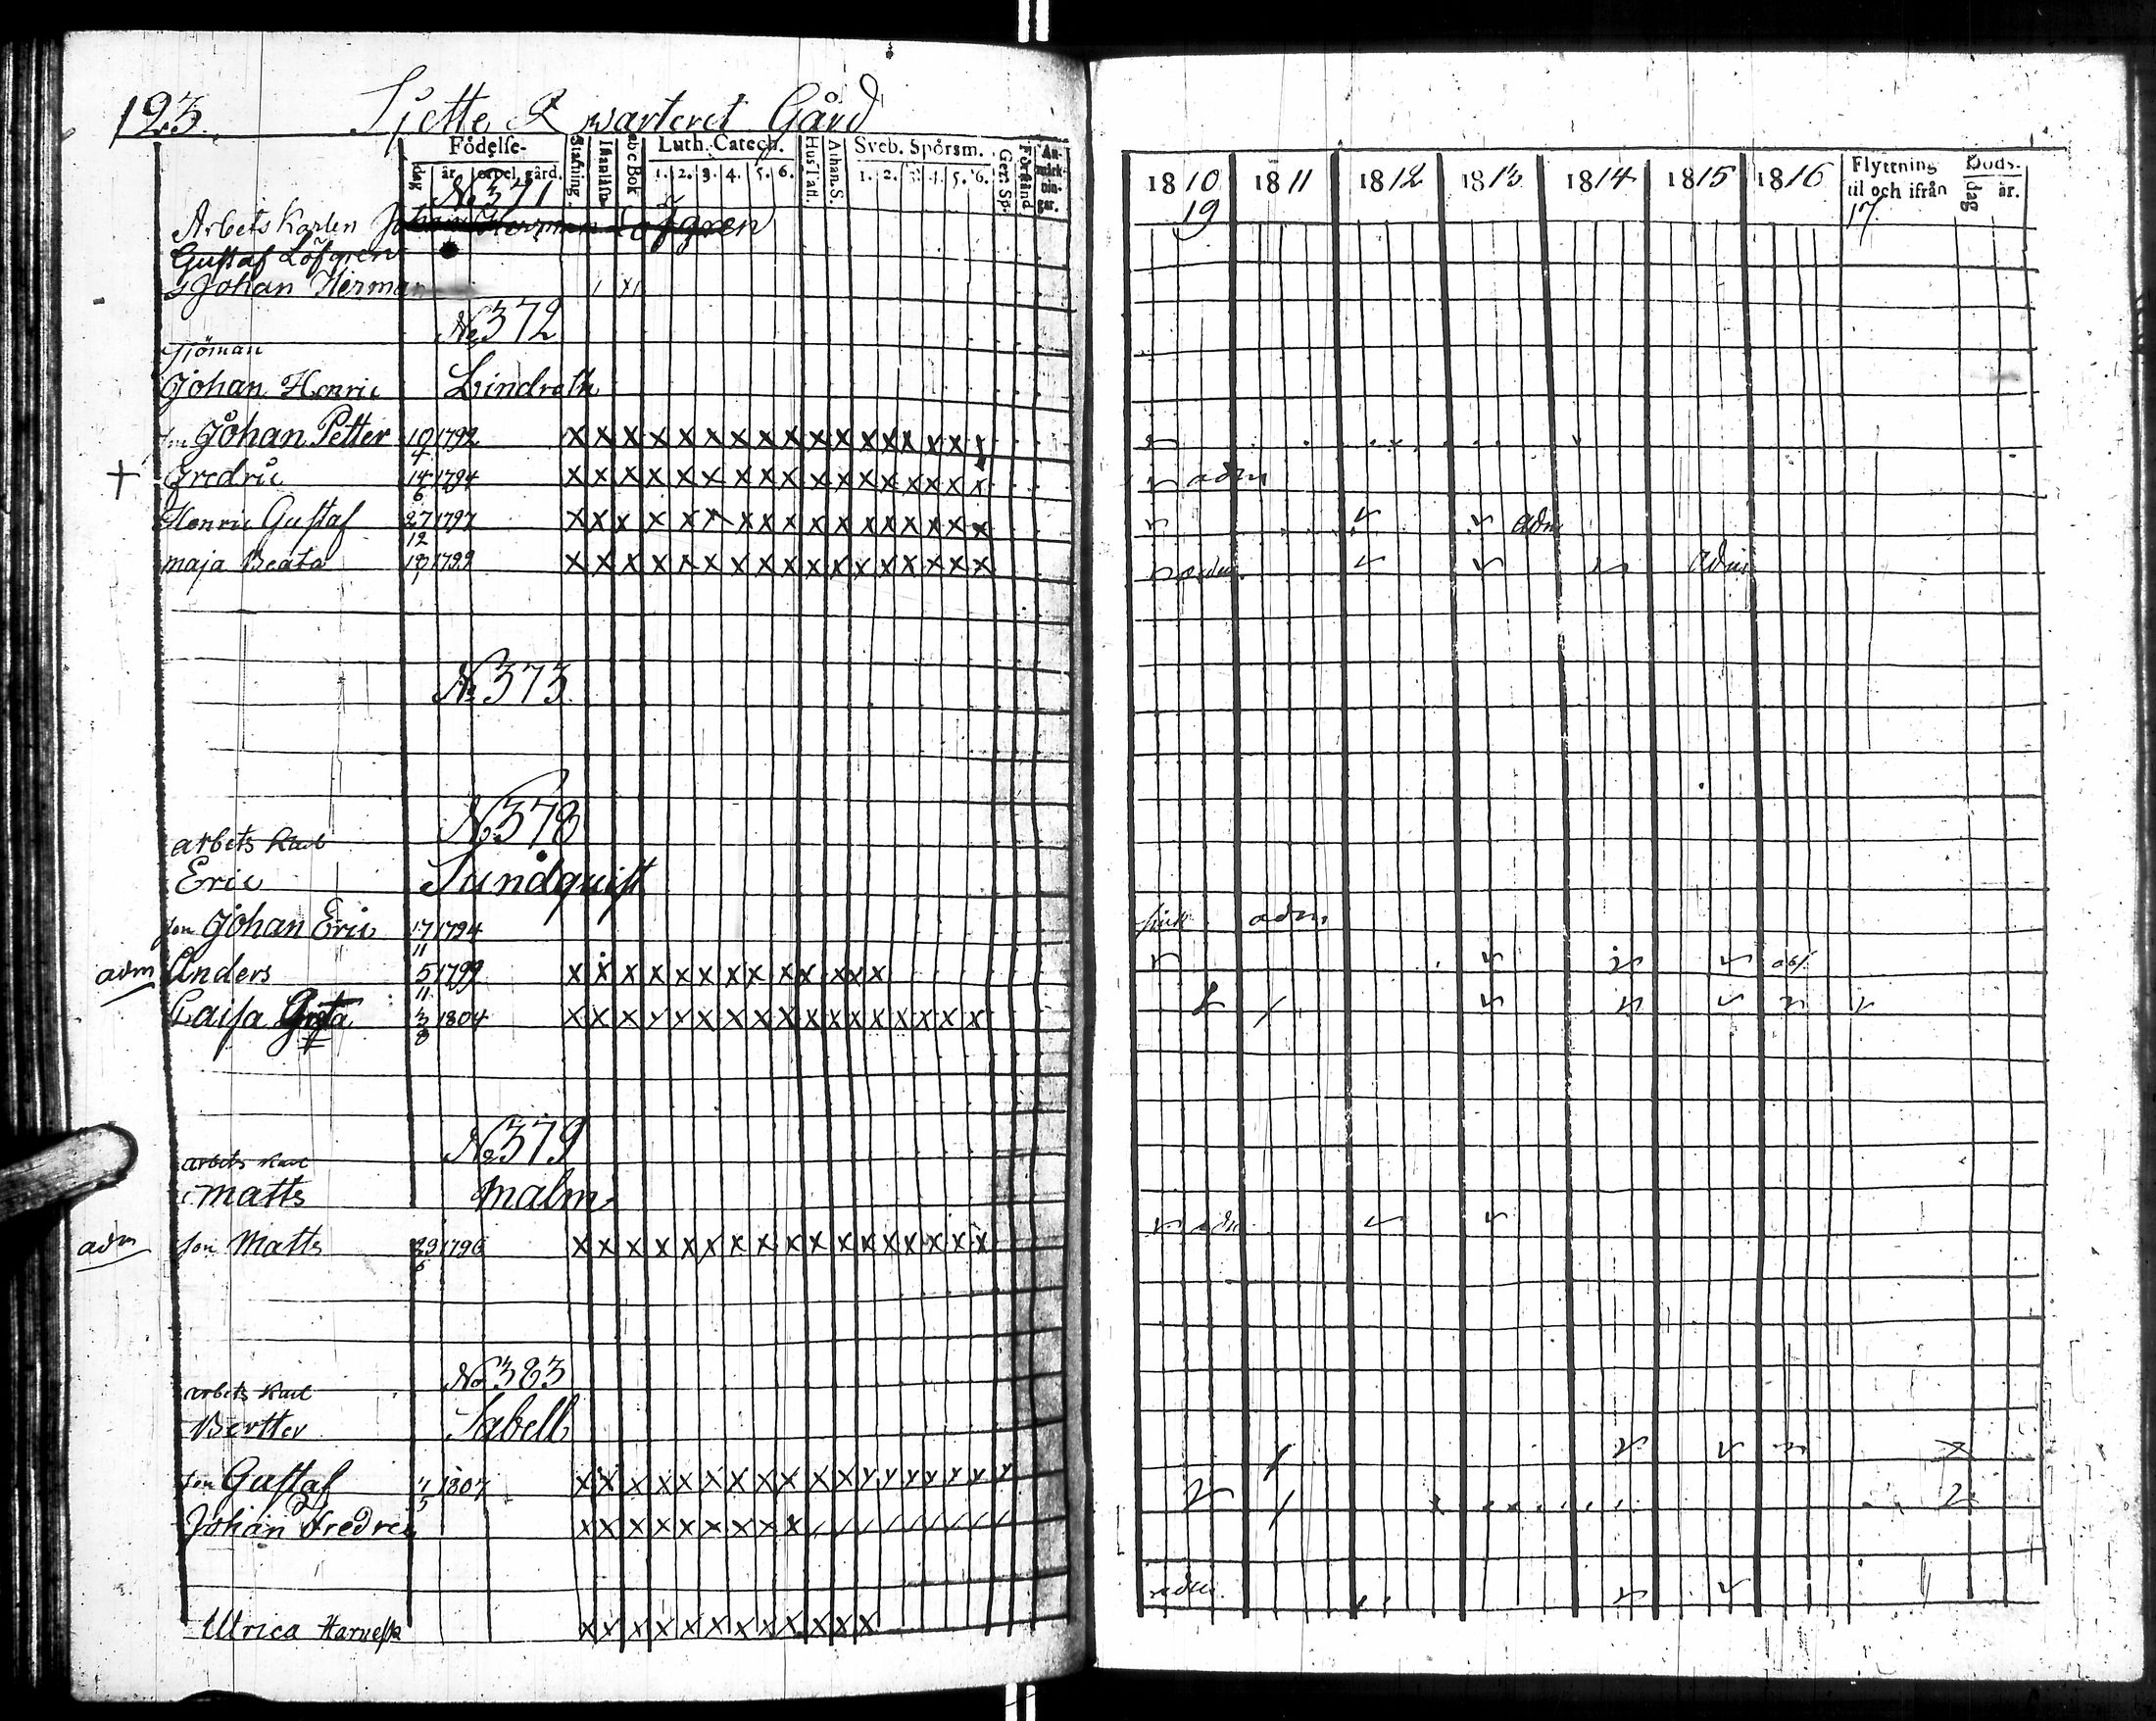 123. Sjette Qwarteret Gård
Födelse- Stafning. Inanläsn. Abc Bok Luth. Catech. Hus Tafl. Athan. S. Sveb. Spörsm. Ger: Sp. Förstånd An-märk-nin-gar.
dag år ort el. gård. 1. 2. 3. 4. 5. 6. 1. 2. 3. 4. 5. 6.
No 371
Arbets Karlen Johan Herman Löfgren
Gustaf Löfgren
S Johan Herman
No 372
Sjöman
Johan Henric Lindroth
son Johan Petter 10/4 1792 X X X X X X X X X X X X X X X X
† Fredric 14/6 1794 X X X X X X X X X X X X X X X X
Henric Gustaf 27/12 1797 X X X X X X X X X X X X X X X X
maja Beata 18/1 1799 X X X X X X X X X X X X X X X X
No 373
No 378
arbets Karl
Eric Sundquist
son Johan Eric 17/11 1794
adm Anders 5/11 1799 X X X X X X X X X X X X X
Caisa Greta 3/8 1804 X X X X X X X X X X X X X X X X
No 379
arbets Karl
matts malm
adm son Matts 29/6 1796 X X X X X X X X X X X X X X X X
No 383
arbets Karl
Bertter Sabell
son Gustaf 4/5 1807 X X X X X X X X X X X X X X X X X
Johan Fredric X X X X X X X X X
Ulrica X X X X X X X X X X X X
1810 1811 1812 1813 1814 1815 1816 Flyttning til och ifrån Döds-
19 17 dag år.
adm
adm
adm adm
sjuk adm
abs.
adm
2 2
adm